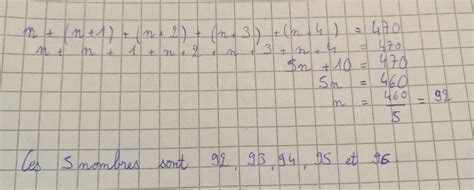 n + (n+1) + (n+2) + (n+3) + (n+4) = 470
n + n + 1 + n + 2 + n + 3 + n + 4 = 470
5n + 10 = 470
5n = 460
n = 460/5 = 92
Ces 5 nombres sont 92, 93, 94, 95 et 96.